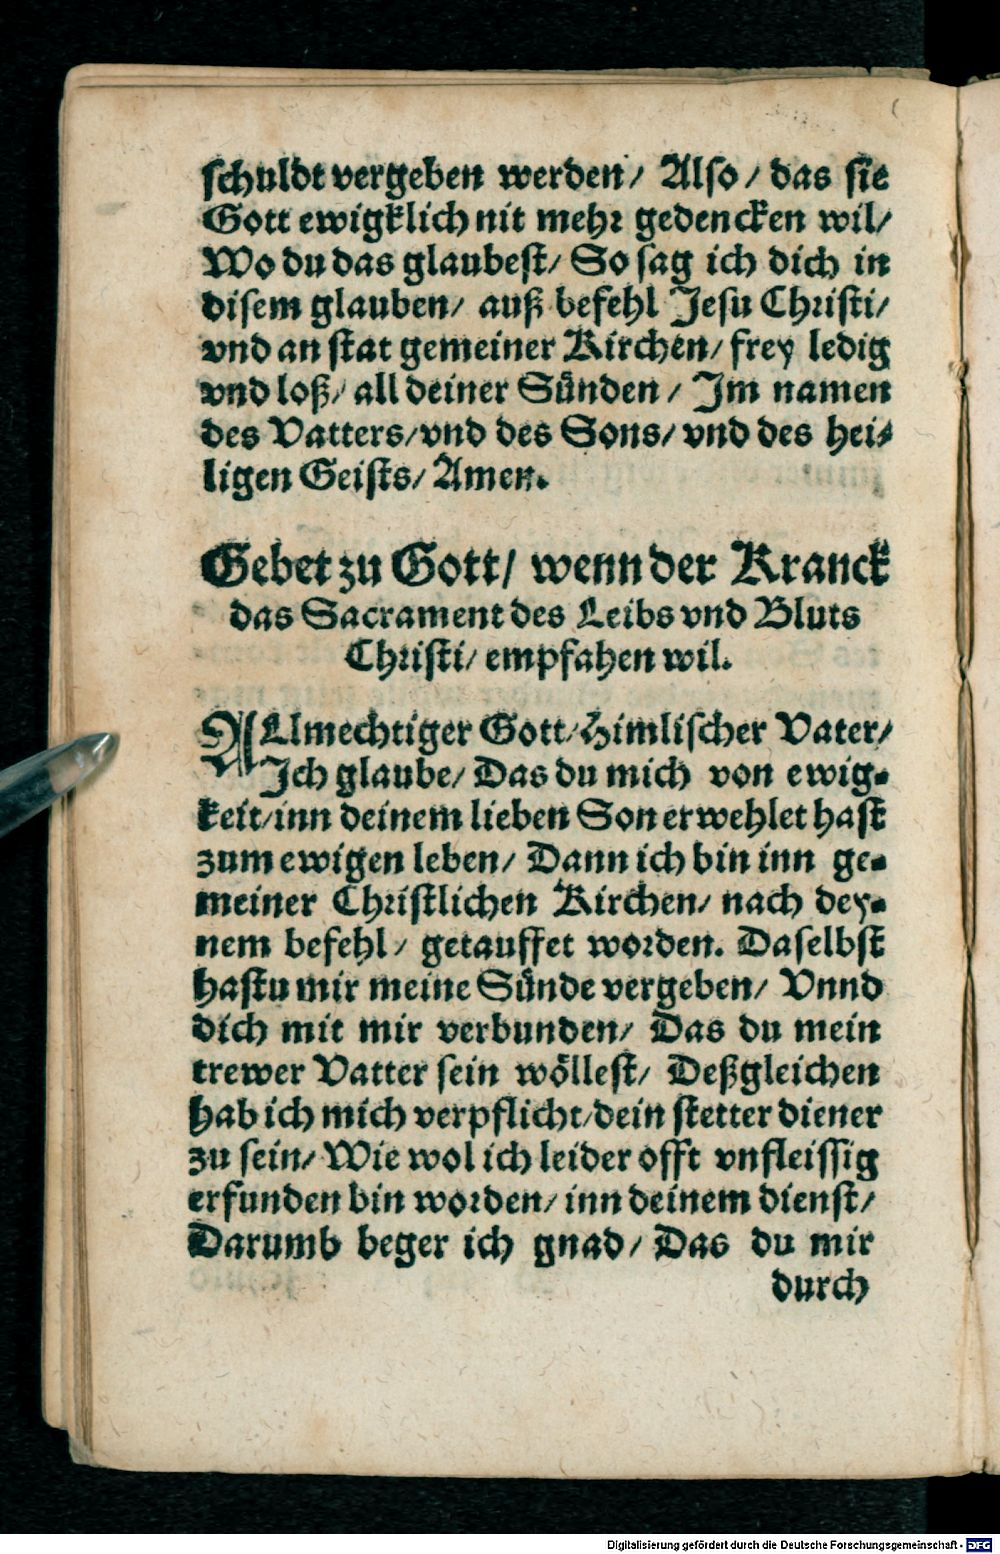 schuldt vergeben werden/ Also/ das sie
Gott ewigklich nit mehr gedencken wil/
Wo du das glaubest/ So sag ich dich in
disem glauben/ auß befehl Jesu Christi/
vnd an stat gemeiner Kirchen/ frey ledig
vnd loß/ all deiner Sünden/ Im namen
des Vatters/ vnd des Sons/ vnd des hei-
ligen Geists/ Amen.
Gebet zu Gott/ wenn der Kranck
das Sacrament des Leibs vnd Bluts
Christi/ empfahen wil.
ALlmechtiger Gott/ Himlischer Vater/
Ich glaube/ Das du mich von ewig-
keit/ inn deinem lieben Son erwehlet hast
zum ewigen leben/ Dann ich bin inn ge-
meiner Christlichen Kirchen/ nach dey-
nem befehl/ getauffet worden. Daselbst
hastu mir meine Sünde vergeben/ Vnnd
dich mit mir verbunden/ Das du mein
trewer Vatter sein wöllest/ Deßgleichen
hab ich mich verpflicht/ dein stetter diener
zu sein/ Wie wol ich leider offt vnfleissig
erfunden bin worden/ inn deinem dienst/
Darumb beger ich gnad/ Das du mir
durch
Digitalisierung gefördert durch die Deutsche Forschungsgemeinschaft - DFG